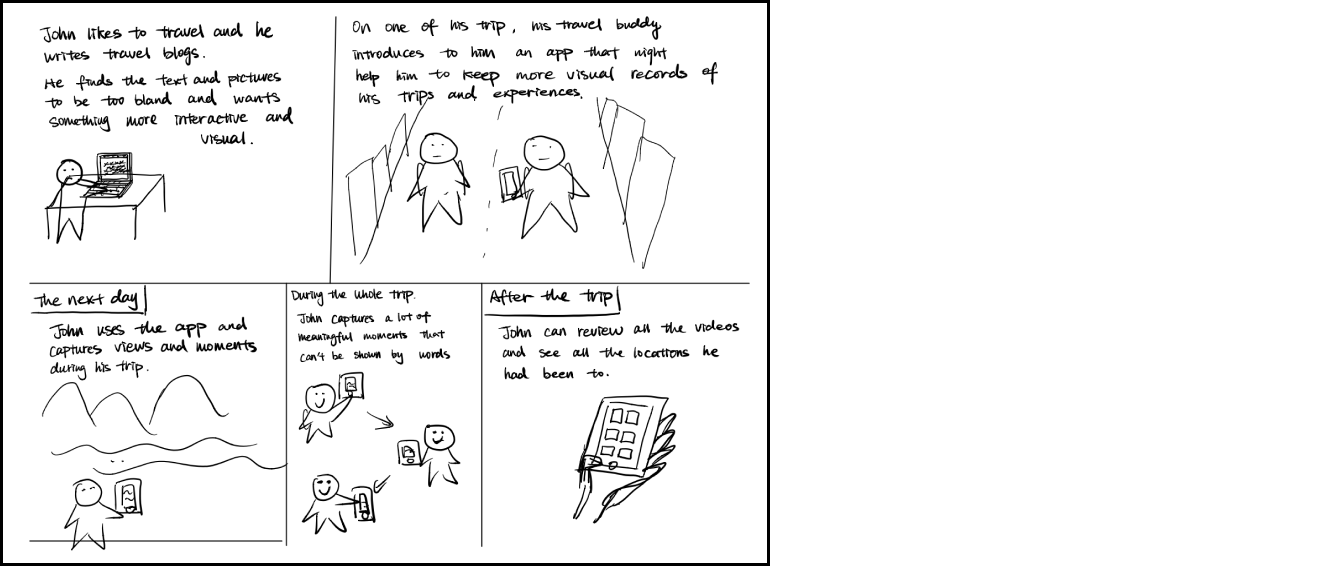 John likes to travel and he
writes travel blogs.
He finds the text and pictures
to be too bland and wants
something more interactive and
visual.
On one of his trip, his travel buddy
introduces to him an app that might
help him to keep more visual records of
his trips and experiences.
The next day
John uses the app and
captures views and moments
during his trip.
During the whole trip.
John captures a lot of
meaningful moments that
can't be shown by words
After the trip
John can review all the videos
and see all the locations he
had been to.